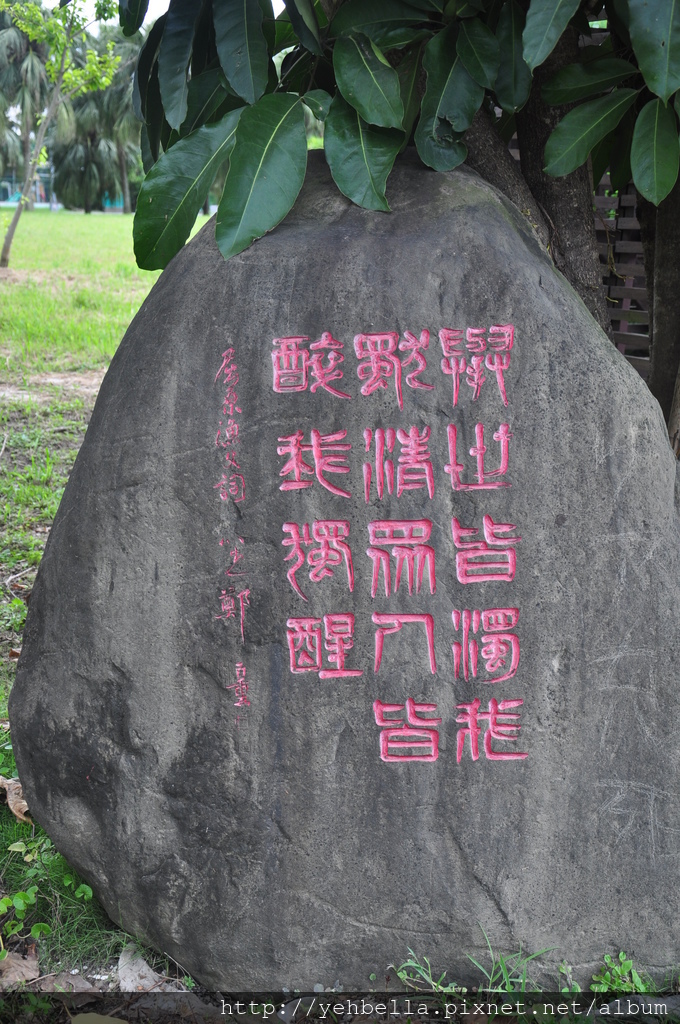 舉世皆濁我
獨清眾人皆
醉我獨醒
屈原漁父詞 鄭
http://yehbella.pixnet.net/album